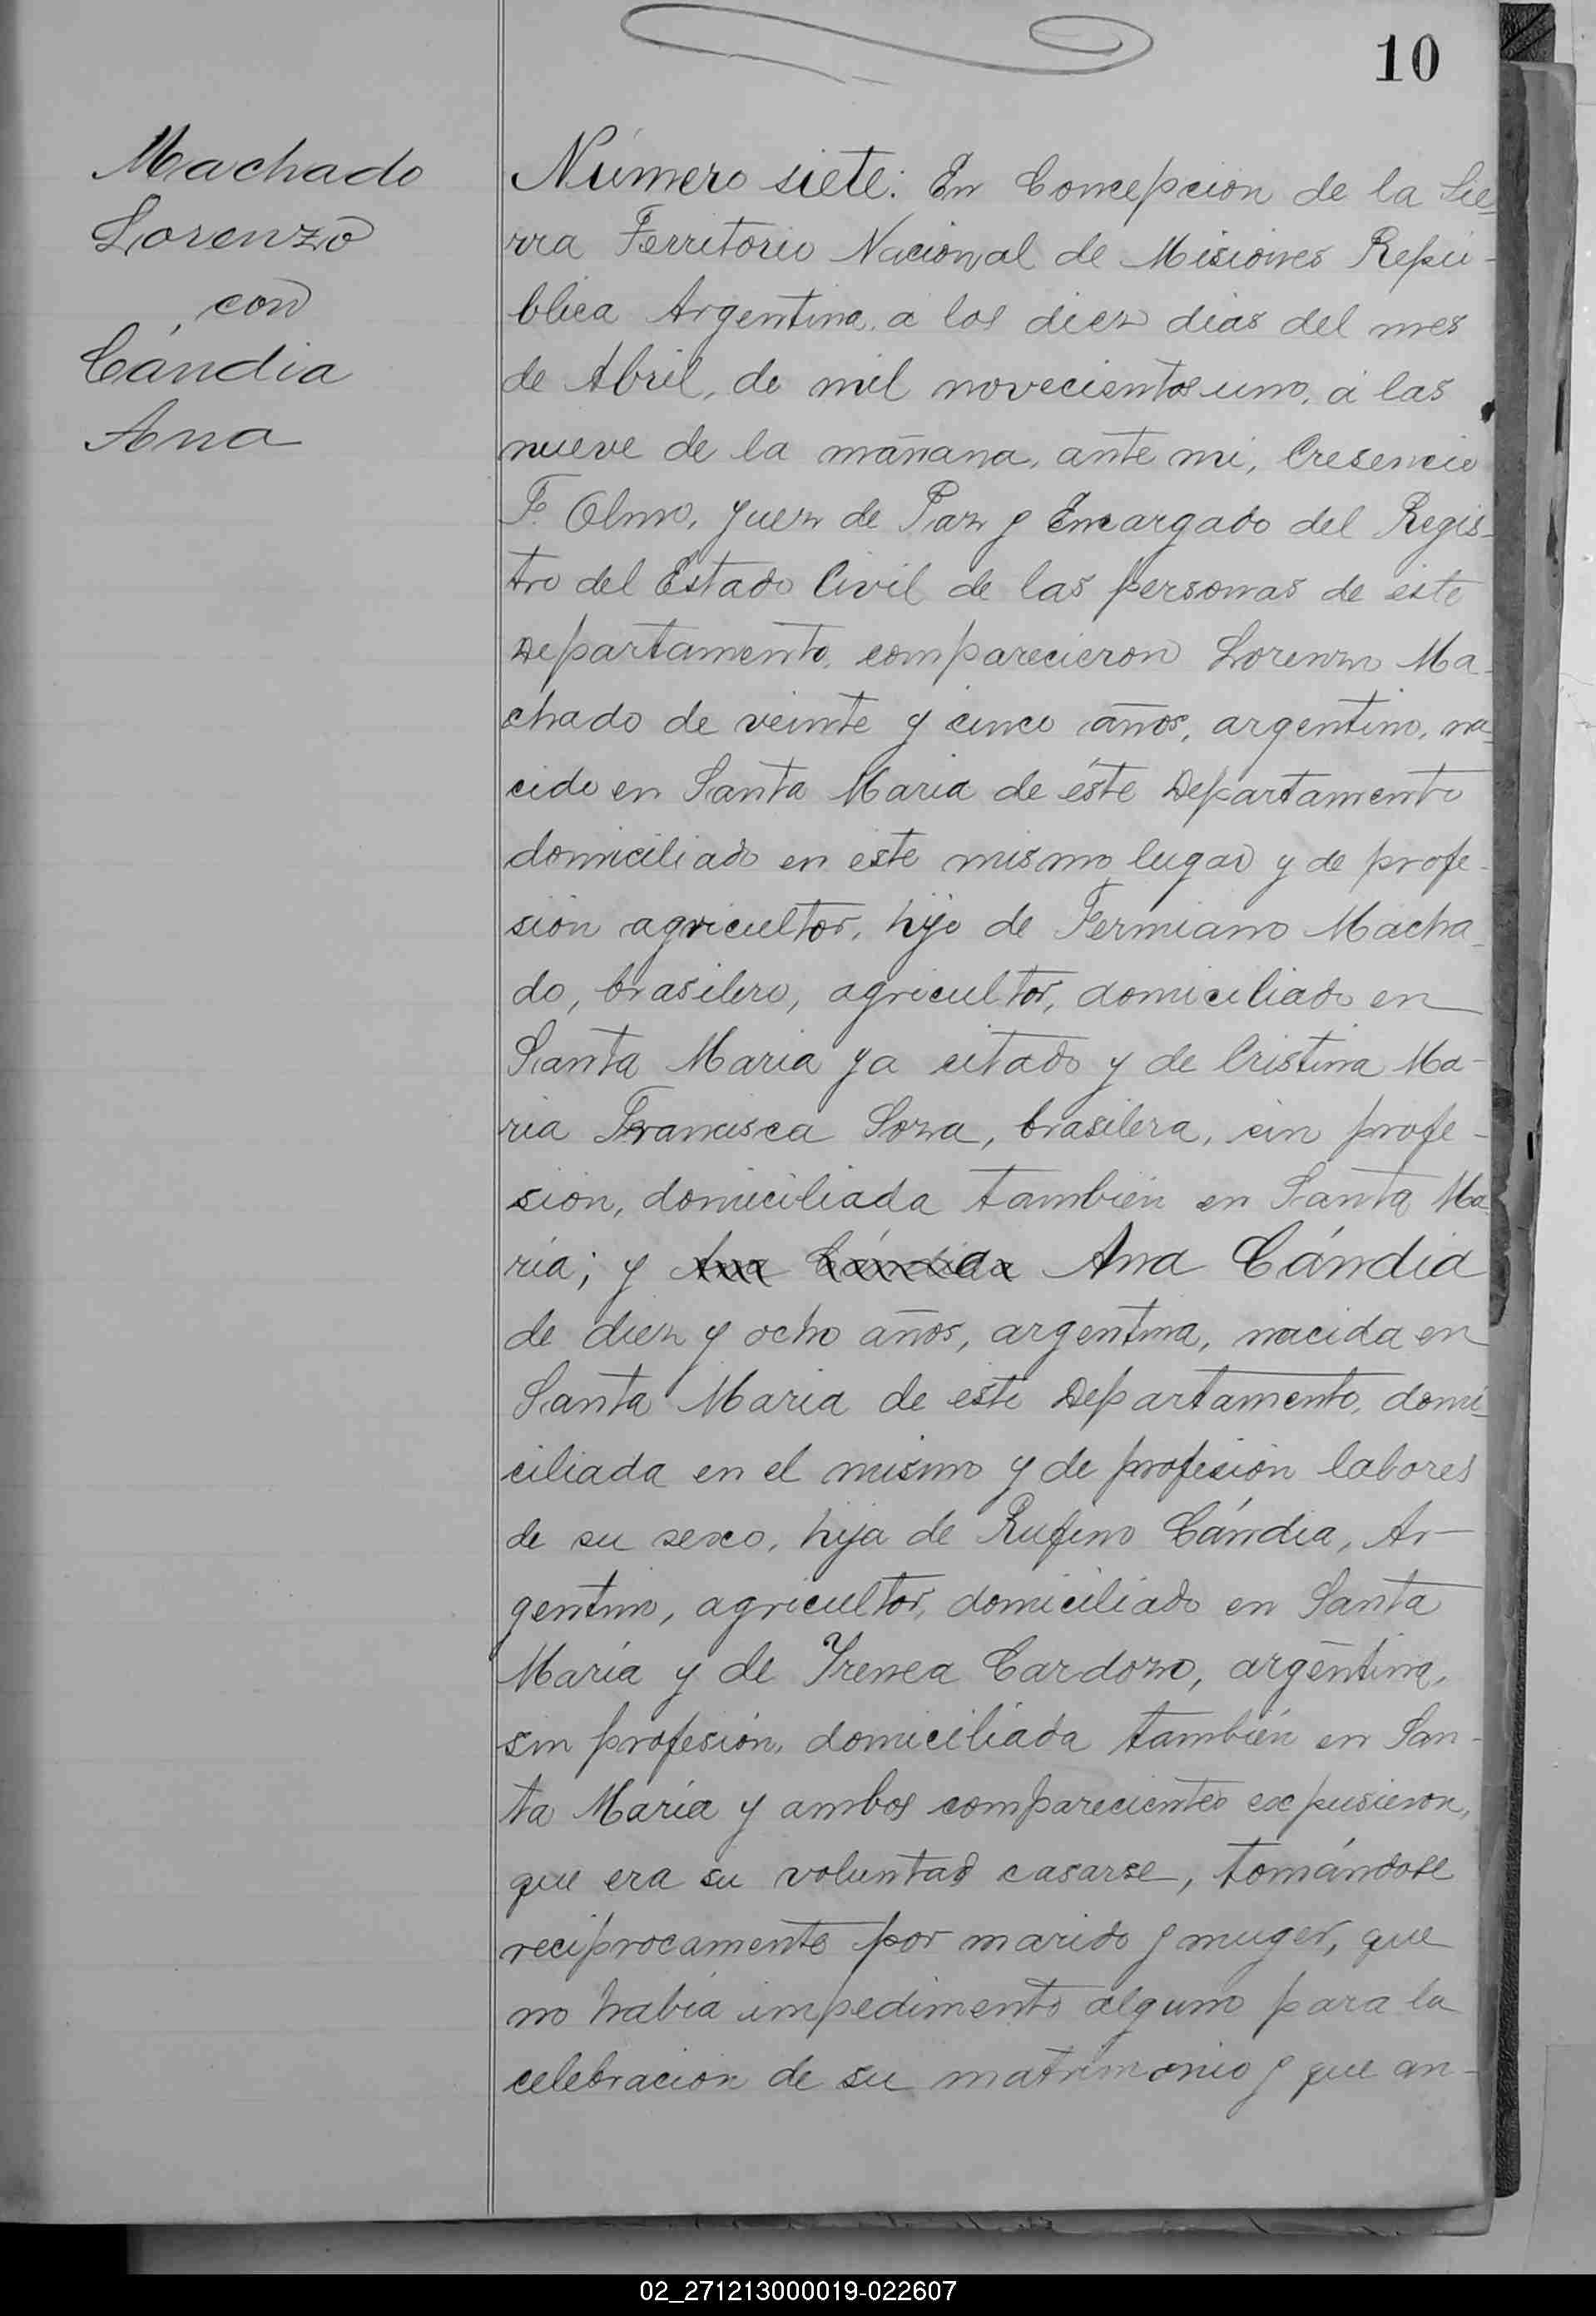 10
Machado
Lorenzo
con
Cándia
Ana
Número siete: En Concepcion de la Sie-
rra Territorio Nacional de Misiones Repú-
blica Argentina, a los diez dias del mes
de Abril, de mil novecientos uno, á las
nueve de la mañana, ante mi, Cresencio
F. Olmo, Juez de Paz y Encargado del Regis-
tro del Estado Civil de las personas de éste
Departamento, comparecieron Lorenzo Ma-
chado de veinte y cinco años, argentino, na-
cido en Santa Maria de éste Departamento
domiciliado en este mismo lugar y de profe-
sión agricultor, hijo de Fermiano Macha-
do, brasilero, agricultor, domiciliado en
Santa Maria ya citado y de Cristina Ma-
ria Francisca Soza, brasilera, sin profe-
sión, domiciliada también en Santa Ma-
ría; y Ana Cándida Ana Cándia
de diez y ocho años, argentina, nacida en
Santa Maria de este Departamento, domi-
ciliada en el mismo y de profesión labores
de su sexo, hija de Rufino Cándia, Ar-
gentino, agricultor, domiciliado en Santa
María y de Yrenea Cardozo, argentina,
sin profesión, domiciliada también en San-
ta María y ambos comparecientes expusieron,
que era su voluntad casarse, tomándose
reciprocamente por marido y muger, que
no había impedimento alguno para la
celebración de su matrimonio y que an-
02_271213000019-022607